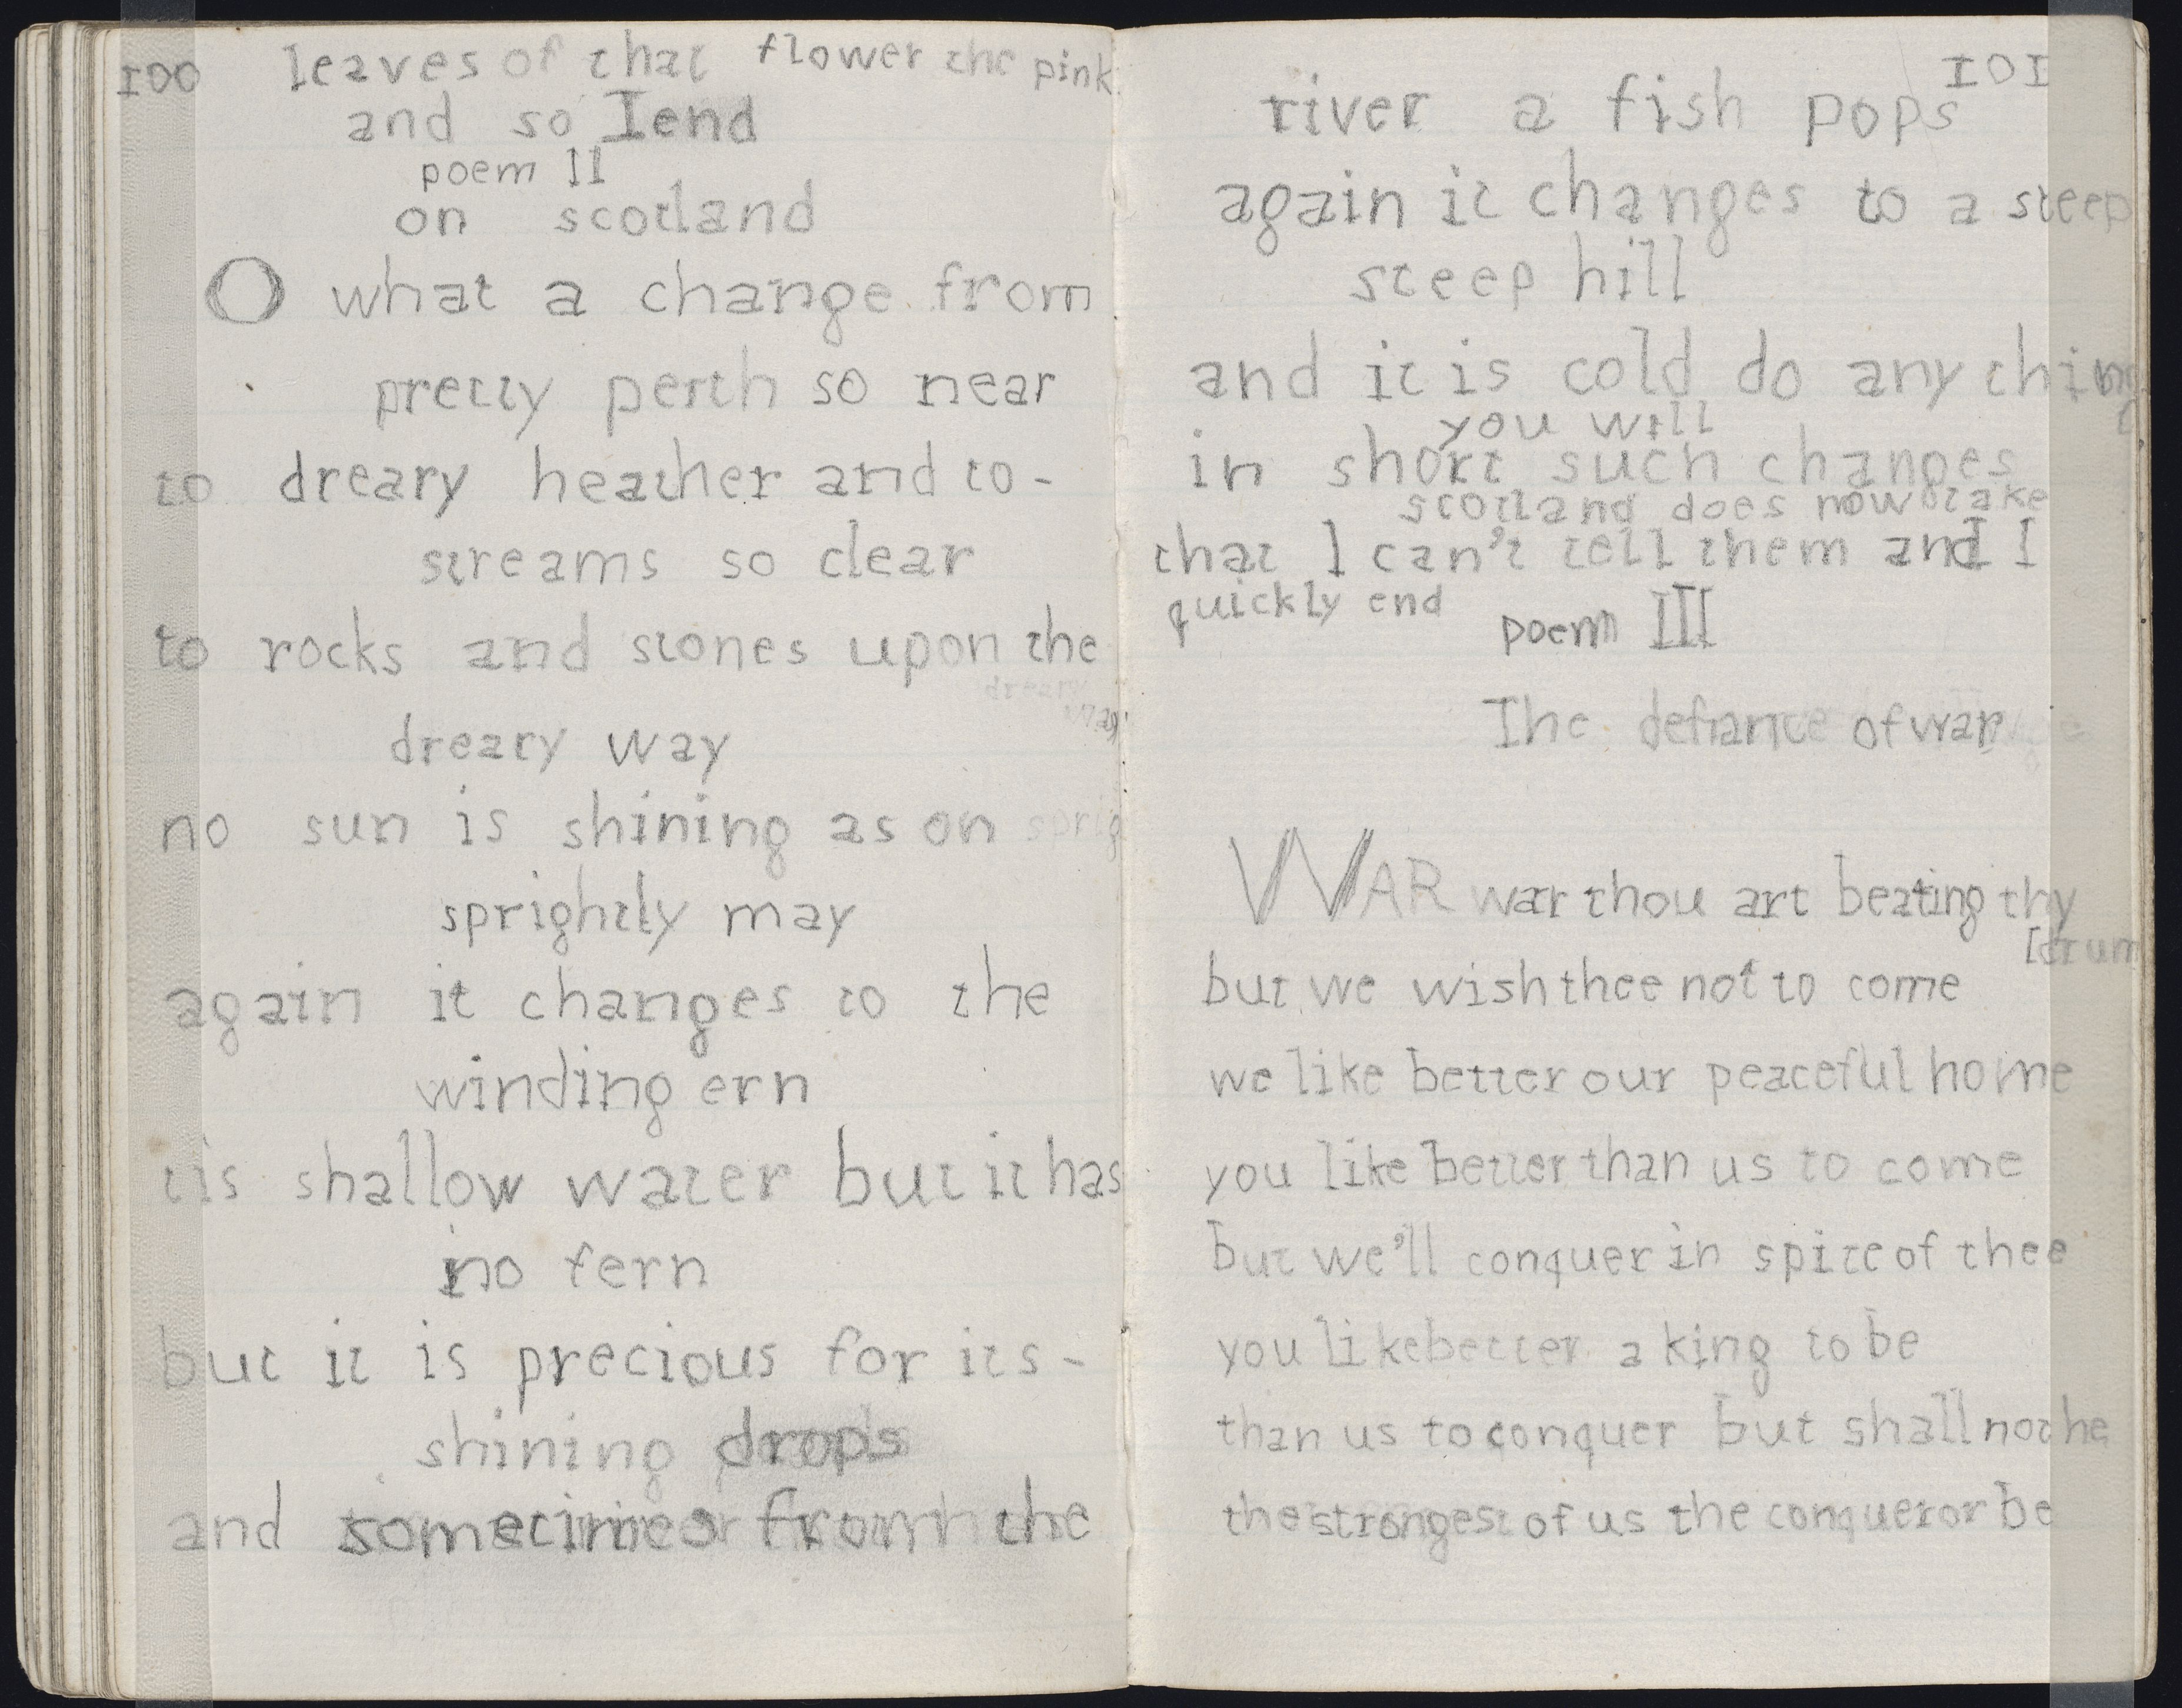 100 leaves of that flower the pink
and so I end
poem II
on scotland
O what a change from
pretty perth so near
to dreary heather and to-
streams so clear
to rocks and stones upon the
dreary
way
dreary way
no sun is shining as on sprig
sprightly may
again it changes to the
winding ern
tis shallow water but it has
no fern
but it is precious for its-
shining drops
and sometimes from the
101
river a fish pops
again it changes to a steep
steep hill
and it is cold do any thing
you will
in short such changes
scotland does now take
that I can't tell them and I I
quickly end
poem III
The defiance of war
WAR war thou art beating thy
[drum
but we wish thee not to come
we like better our peaceful home
you like better than us to come
but we'll conquer in spite of thee
you like better a king to be
than us to conquer but shall not he
the strongest of us the conqueror be